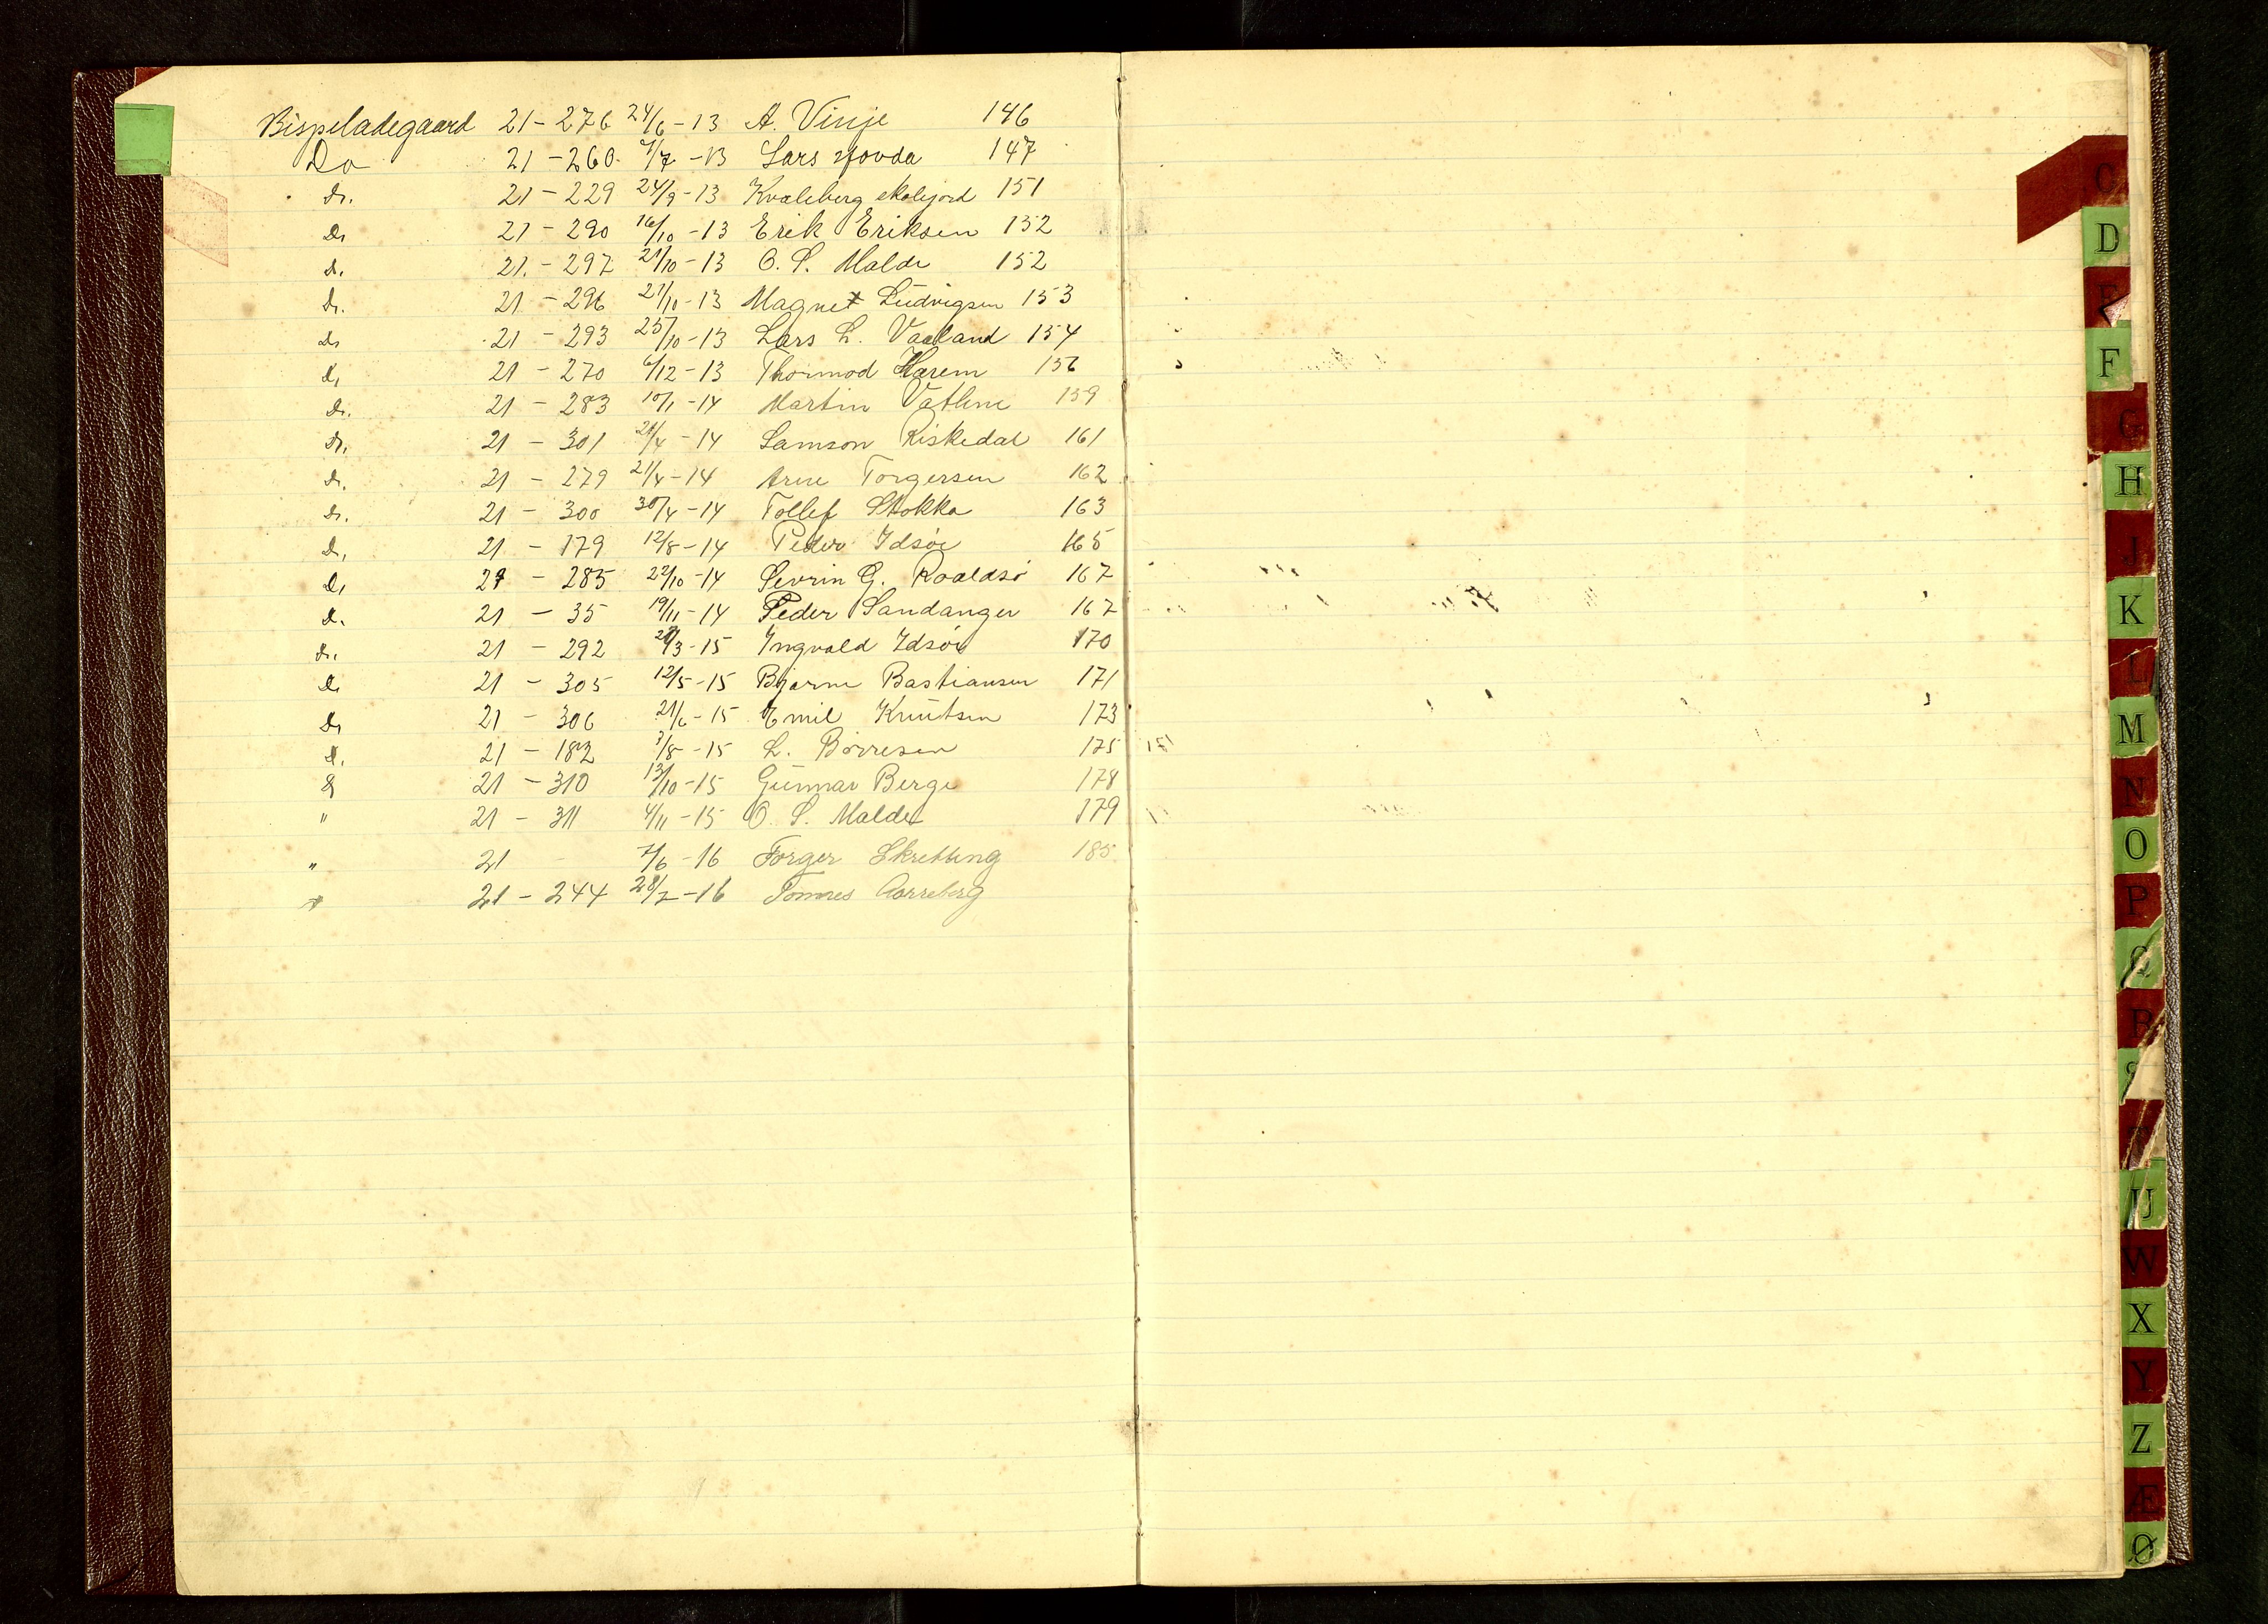 Bispeladegaard 21 - 276 24/6 - 13 A. Vinje 146
Do 21 - 260 7/7 - 13 Lars 147
Do. 21 - 229 24/9 - 13 Kvaleberg skolejord 151
Do 21 - 290 16/10 - 13 Erik Eriksen 152
Do. 21 - 297 21/10 - 13 O. S. Malde 152
Do. 21 - 296 21/10 - 13 Magne Ludvigsen 153
Do 21 - 293 25/10 - 13 Lars L. Vaaland 154
Do 21 - 270 6/12 - 13 Thormod Harem 156
Do. 21 - 283 10/1 - 14 Martin Vatlne 159
Do. 21 - 301 21/4 - 14 Samson Kiskedal 161
Do. 21 - 279 21/4 - 14 Arne Torgersen 162
Do. 21 - 300 30/4 - 14 Tollef Stokka 163
Do. 21 - 179 12/8 - 14 Peder Idsøe 165
Do 21 - 285 22/10 - 14 Sevrin G. Roaldsø 167
Do. 21 - 35 19/11 - 14 Peder Sandanger 167
Do. 21 - 292 /3 - 15 Ingvald Idsøe 170
Do 21 - 305 12/5 - 15 Bjarne Bastiansen 171
Do 21 - 306 21/6 - 15 Emil Knutsen 173
Do. 21 - 182 3/8 - 15 L. Børresen 175
Do 21 - 310 13/10 - 15 Gunnar Berge 178
" 21 - 311 4/11 - 15 O. S. Malde 179
" 21 - 7/6 - 16 Torger Skretting 185
" 21 - 244 28/7 - 16 Tønnes Aarreberg
C
D
E
F
G
H
J
K
L
M
N
O
P
Q
R
S
U
W
X
Y
Z
Æ
Ø